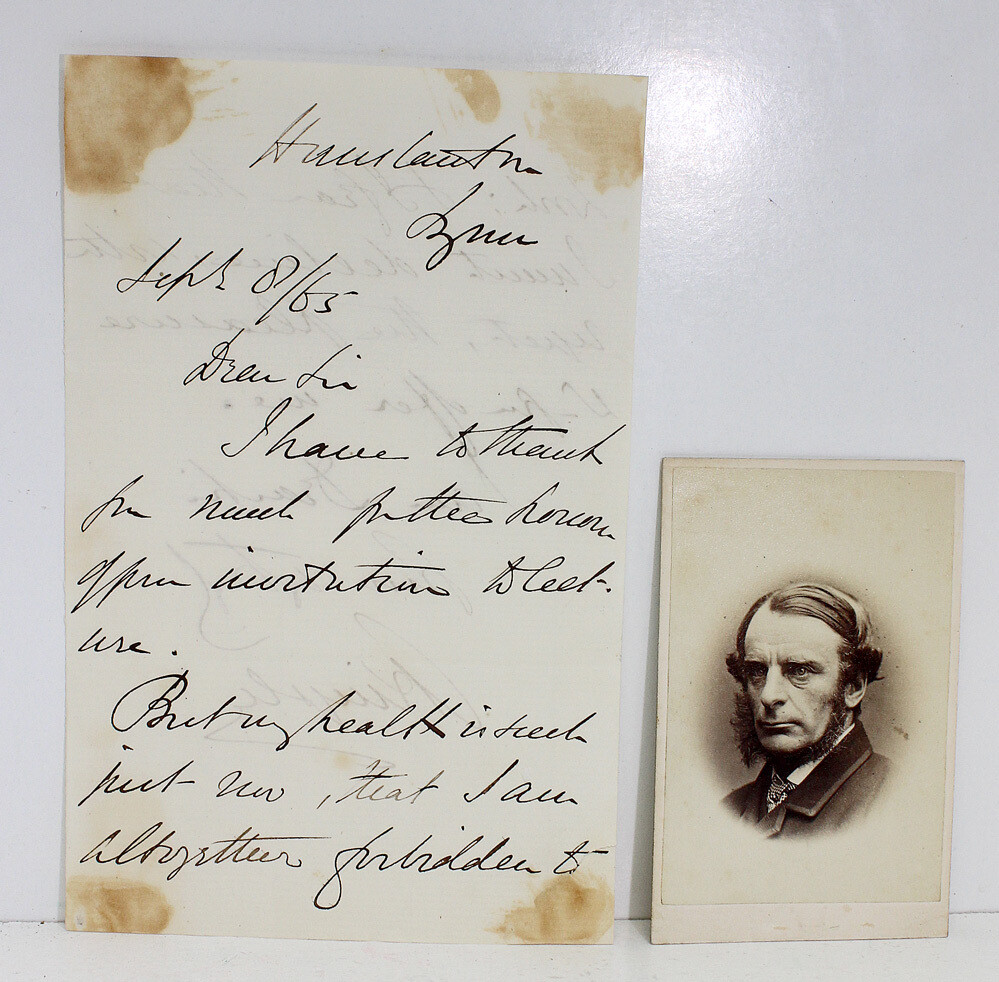 Hunstanton
Lynn
Sept 8/65
Dear Sir
I have to thank
you much for the honour
of your invitation to lect-
ure.
But my health is such
just now, that I am
altogether forbidden to